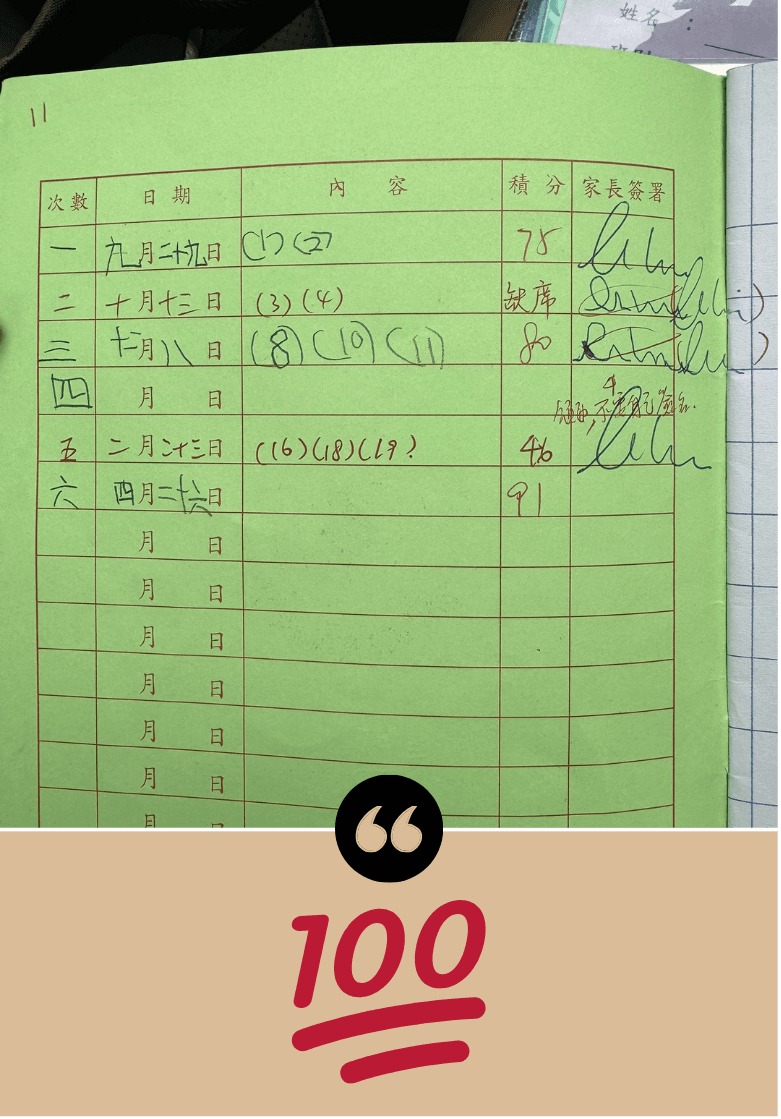 姓名：
11
次數 日期 內容 積分 家長簽署
一 九月二十九日 (1) (2) 78
二 十月十三日 (3) (4) 缺席
三 十二月八日 (8) (10) (11) 80
四 月 日
不需自己簽名.
五 二月二十三日 (16) (18) (19? 46
六 四月二十六日 91
月 日
月 日
月 日
月 日
月 日
月 日
月 日
100